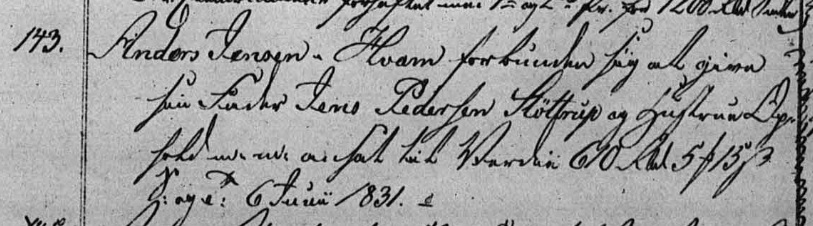 forhæftet med 1ste og 2 Pr. for 1200 Rbd
143. Anders Jensen i Hvam forbunden sig at give
sin Fader Jens Pedersen Støttrup og Hustrue Op-
hold m: m: ansat til Værdie 610 Rbd 5 # 15 ß
S: og C: 6 Junii 1831.